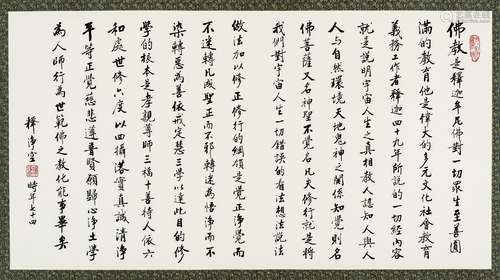 佛教是釋迦牟尼佛對一切眾生至善圓
滿的教育他是偉大的多元文化社會教育
義務工作者釋迦四十九年所說的一切經內容
就是說明宇宙人生之真相教人認知人與人
人與自然環境天地鬼神之關係知覺則名
佛菩薩又名神聖不覺名凡夫修行就是將
我們對宇宙人生一切錯誤的看法想法說法
做法加以修正修行的綱領是覺正淨覺而
不迷轉凡成聖正而不邪轉迷為悟淨而不
染轉惡為善依戒定慧三學以達此目的修
學的根本是孝親尊師三福十善待人依六
和處世修六度以四攝落實真誠清淨
平等正覺慈悲遵普賢願歸心淨土學
為人師行為世範佛之教化能事畢矣
釋淨空
時年七十四